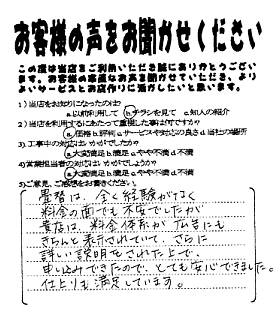 お客様の声をお聞かせください
この度は当店をご利用いただき誠にありがとうござい
ます。お客様の率直なお声を聞かせていただき、より
よいサービスとお店作りに活かしたいと思います。
1)当店をお知りになったのは?
a.以前利用して b.チラシを見て c.知人の紹介
2)当店を利用するにあたって重視した事は何ですか?
a.価格 b.評判 c.サービスや対応の良さ d.当社の場所
3)工事中の対応はいかがでしたか?
a.大変満足 b.満足 c.やや不満 d.不満
4)営業担当者の対応はいかがでしょうか?
a.大変満足 b.満足 c.やや不満 d.不満
5)ご意見、ご感想をお書きください。
畳替は、全く経験がなく
料金の面でも不安でしたが
貴店は、料金体系が広告にも
きちんと表示されていて、さらに
詳しい説明をされた上で、
申し込みできたので、とても安心できました。
仕上りも満足しています。